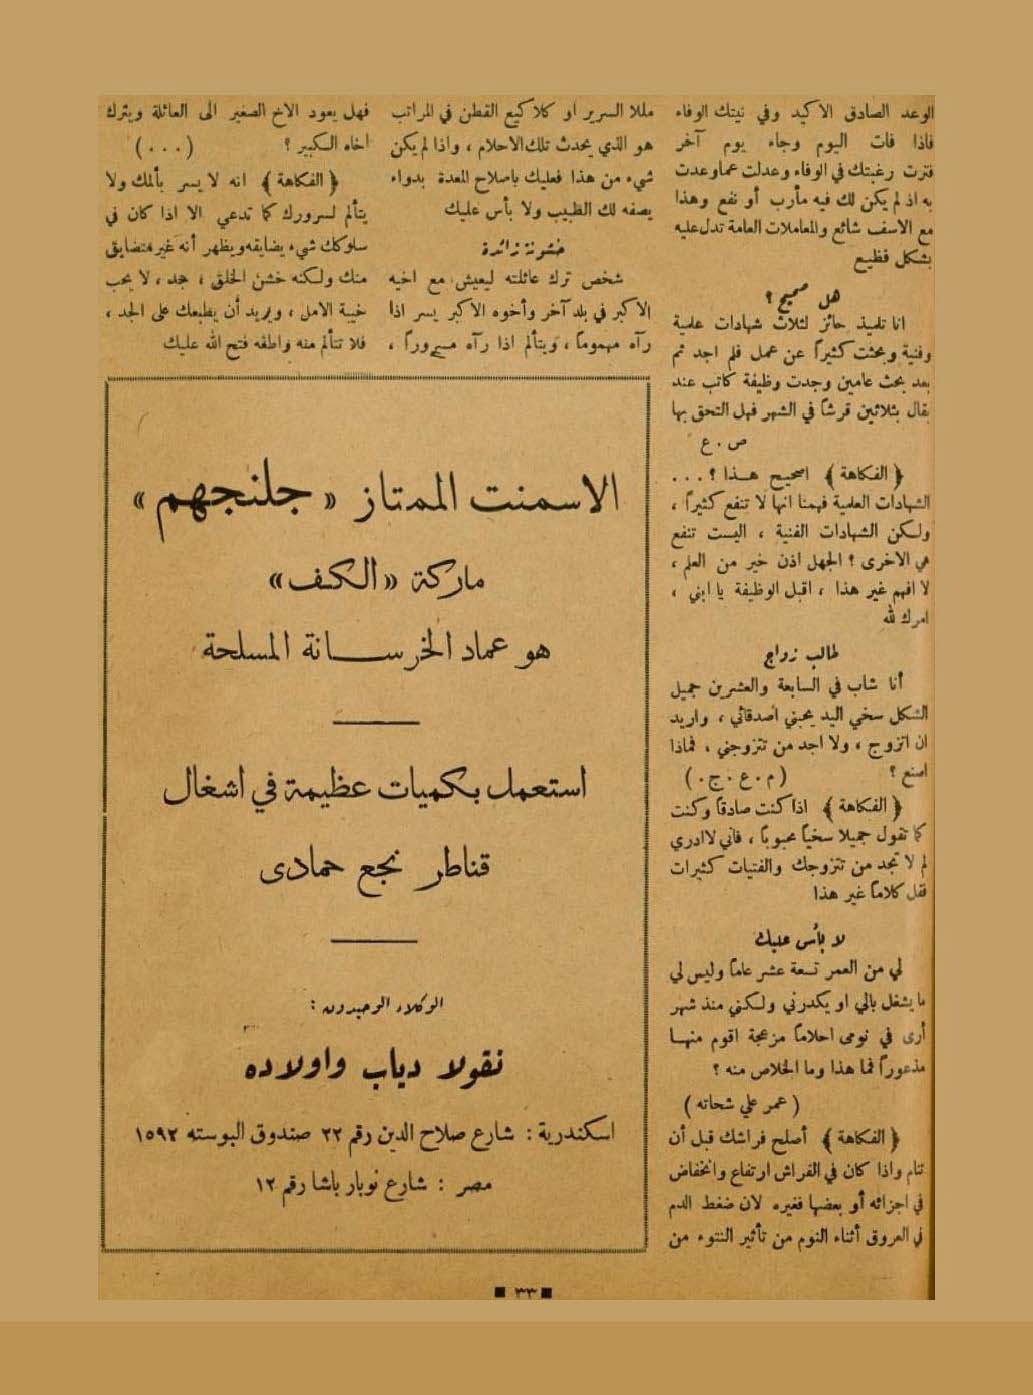 الوعد الصادق الاكيد وفي نيتك الوفاء
فاذا فات اليوم وجاء يوم آخر
فترت رغبتك في الوفاء وعدلت عما وعدت
به اذ لم يكن لك فيه مأرب أو نفع وهذا
مع الاسف شائع والمعاملات العامة تدل عليه
بشكل فظيع
هل صحيح ؟
انا تلميذ حائز لثلاث شهادات علمية
وفنية وبحثت كثيراً عن عمل فلم اجد ثم
بعد بحث عامين وجدت وظيفة كاتب عند
بقال بثلاثين قرشاً في الشهر فهل التحق بها
ص . ع
﴿ الفكاهة ﴾ اصحيح هذا ؟ . . .
الشهادات العلمية فهمنا انها لا تنفع كثيراً ،
ولكن الشهادات الفنية ، اليست تنفع
هي الاخرى ؟ الجهل اذن خير من العلم ،
لا افهم غير هذا ، اقبل الوظيفة يا ابني ،
امرك لله
طالب زواج
أنا شاب في السابعة والعشرين جميل
الشكل سخي اليد يحبني اصدقائي ، واريد
ان اتزوج ، ولا اجد من تتزوجني ، فماذا
اصنع ؟ ( م . ع . ج . )
﴿ الفكاهة ﴾ اذا كنت صادقاً وكنت
كما تقول جميلا سخياً محبوباً ، فاني لا ادري
لم لا تجد من تتزوجك والفتيات كثيرات
فقل كلاماً غير هذا
لا بأس عليك
لي من العمر تسعة عشر عاماً وليس لي
ما يشغل بالي او يكدرني ولكني منذ شهر
أرى في نومى احلاماً مزعجة اقوم منها
مذعوراً فما هذا وما الخلاص منه ؟
( عمر علي شحاته )
﴿ الفكاهة ﴾ أصلح فراشك قبل أن
تنام واذا كان في الفراش ارتفاع وانخفاض
في اجزائه أو بعضها فغيره لان ضغط الدم
في العروق أثناء النوم من تأثير النتوء من
مللا السرير او كلاكيع القطن في المراتب
هو الذي يحدث تلك الاحلام ، واذا لم يكن
شيء من هذا فعليك باصلاح المعدة بدواء
يصفه لك الطبيب ولا بأس عليك
خشونة زائدة
شخص ترك عائلته ليعيش مع اخيه
الاكبر في بلد آخر وأخوه الاكبر يسر اذا
رآه مهموماً ، ويتألم اذا رآه مسروراً ،
فهل يعود الاخ الصغير الى العائلة ويترك
اخاه الكبير ؟ ( . . . )
﴿ الفكاهة ﴾ انه لا يسر بألمك ولا
يتألم لسرورك كما تدعي الا اذا كان في
سلوكك شيء يضايقه ويظهر أنه غير متضايق
منك ولكنه خشن الخلق ، جد ، لا يحب
خيبة الامل ، ويريد أن يطبعك على الجد ،
فلا تتألم منه واطفه فتح الله عليك
الاسمنت الممتاز « جلنجهم »
ماركة « الكف »
هو عماد الخرسانة المسلحة
استعمل بكميات عظيمة في اشغال
قناطر نجع حمادى
الوكلاء الوحيدون :
نقولا دياب واولاده
اسكندرية : شارع صلاح الدين رقم ٢٢ صندوق البوسته ١٥٩٢
مصر : شارع نوبار باشا رقم ١٢
■ ٣٣ ■